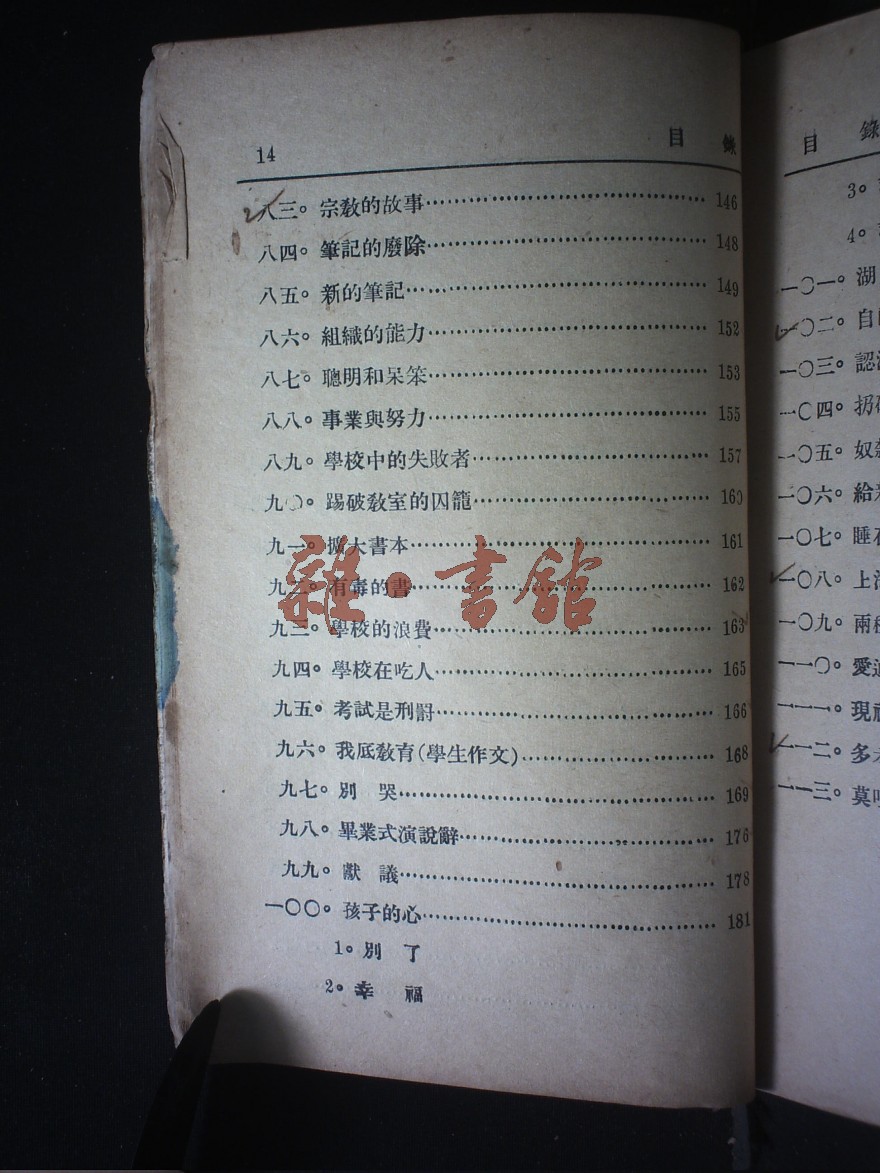 14 目錄
八三。宗教的故事 146
八四。筆記的廢除 148
八五。新的筆記 149
八六。組織的能力 152
八七。聰明和呆笨 153
八八。事業與努力 155
八九。學校中的失敗者 157
九〇。踢破教室的囚籠 160
九一。擴大書本 161
九二。有毒的書 162
九三。學校的浪費 163
九四。學校在吃人 165
九五。考試是刑罰 166
九六。我底教育(學生作文) 168
九七。別 哭 169
九八。畢業式演說辭 176
九九。獻 議 178
一〇〇。孩子的心 181
1。別 了
2。幸 福
雜·書館
目 錄
3。
4。
一〇一。湖
一〇二。自
一〇三。認
一〇四。扔
一〇五。奴
一〇六。給
一〇七。睡
一〇八。上
一〇九。兩
一一〇。愛
一一一。現
一一二。多
一一三。莫